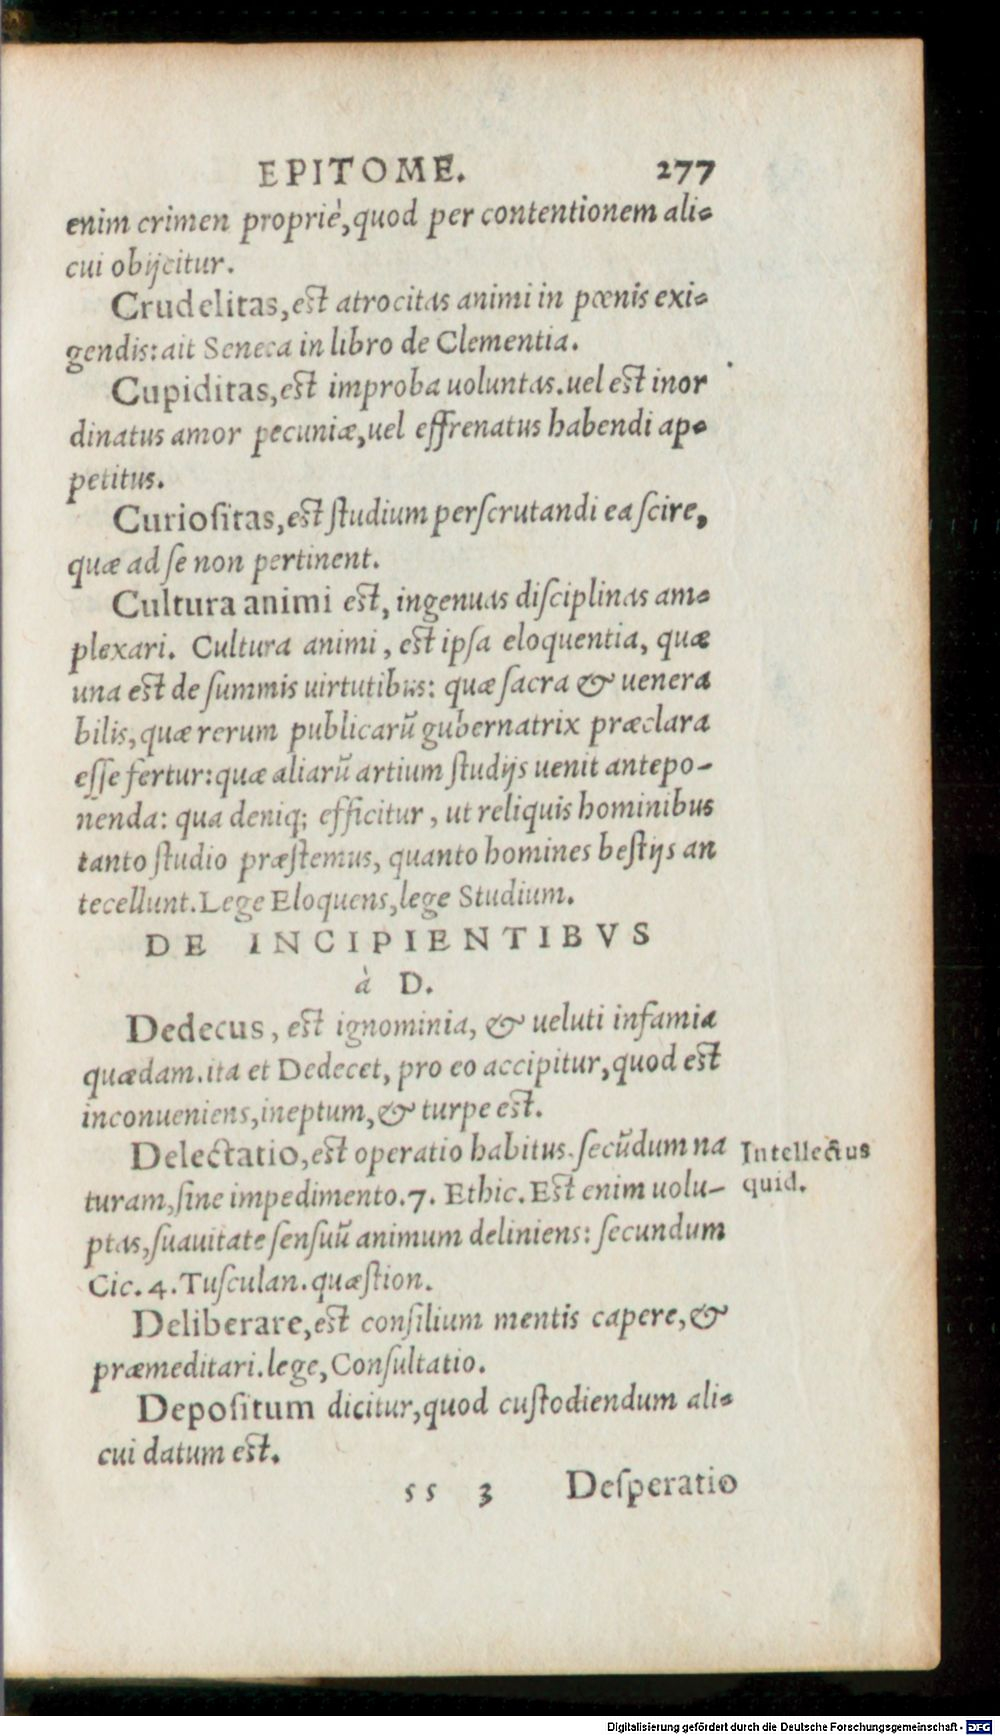 EPITOME. 277
enim crimen propriè, quod per contentionem ali-
cui obijcitur.
Crudelitas, est atrocitas animi in pœnis exi-
gendis: ait Seneca in libro de Clementia.
Cupiditas, est improba uoluntas. uel est inor
dinatus amor pecuniæ, uel effrenatus habendi ap-
petitus.
Curiositas, est studium perscrutandi ea scire,
quæ ad se non pertinent.
Cultura animi est, ingenuas disciplinas am-
plexari. Cultura animi, est ipsa eloquentia, quæ
una est de summis uirtutibus: quæ sacra & uenera
bilis, quæ rerum publicarũ gubernatrix præclara
esse fertur: quæ aliarũ artium studijs uenit antepo-
nenda: qua deniq; efficitur, ut reliquis hominibus
tanto studio præstemus, quanto homines bestijs an
tecellunt. Lege Eloquens, lege Studium.
DE INCIPIENTIBVS
à D.
Dedecus, est ignominia, & ueluti infamia
quædam. ita et Dedecet, pro eo accipitur, quod est
inconueniens, ineptum, & turpe est.
Delectatio, est operatio habitus. secũdum na
turam, sine impedimento. 7. Ethic. Est enim uolu-
ptas, suauitate sensuũ animum deliniens: secundum
Cic. 4. Tusculan. quæstion.
Intellectus
quid.
Deliberare, est consilium mentis capere, &
præmeditari. lege, Consultatio.
Depositum dicitur, quod custodiendum ali-
cui datum est.
ss 3 Desperatio
Digitalisierung gefördert durch die Deutsche Forschungsgemeinschaft - DFG